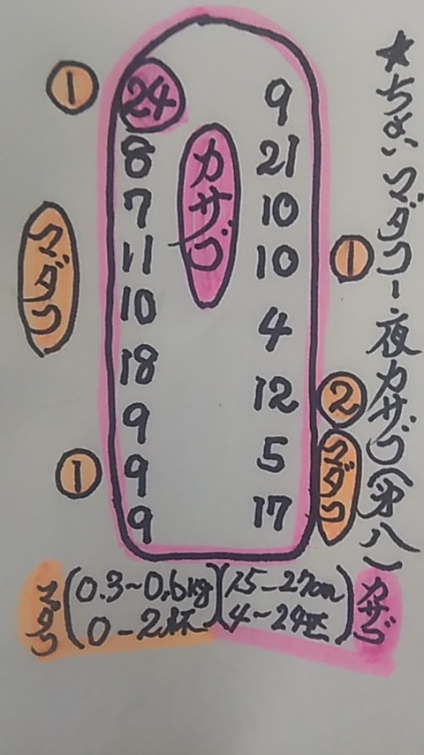 ★ちょいマダコー夜カサゴ(第八)
①
マダコ
①
24
8
7
11
10
18
9
9
9
カサゴ
9
21
10
10
4
12
5
17
①
②
マダコ
マダコ(0.3~0.6kg
0-2杯)
(15-27cm
4~24匹)カサゴ